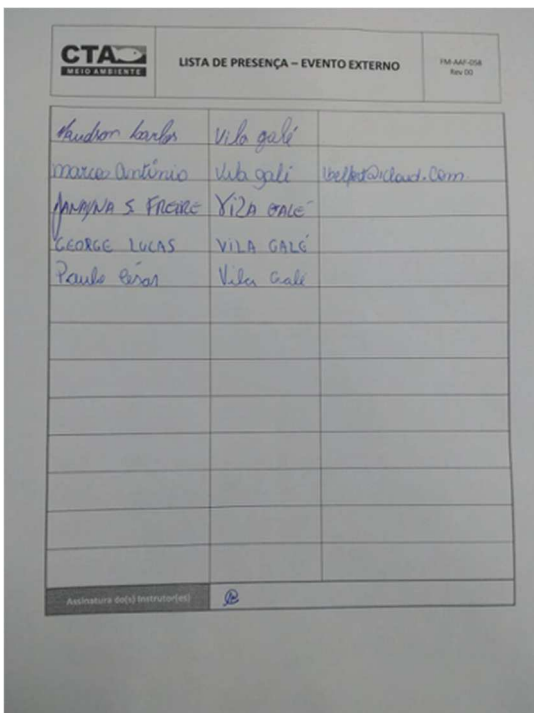 CTA
MEIO AMBIENTE
LISTA DE PRESENÇA – EVENTO EXTERNO
FM-AAF-058
Rev 00
Vila galé
Marcos Antônio Vila galé
JANAYNA S. FREIRE VILA GALÉ
GEORGE LUCAS VILA GALÉ
Paulo César Vila Galé
Assinatura do(s) Instrutor(es)